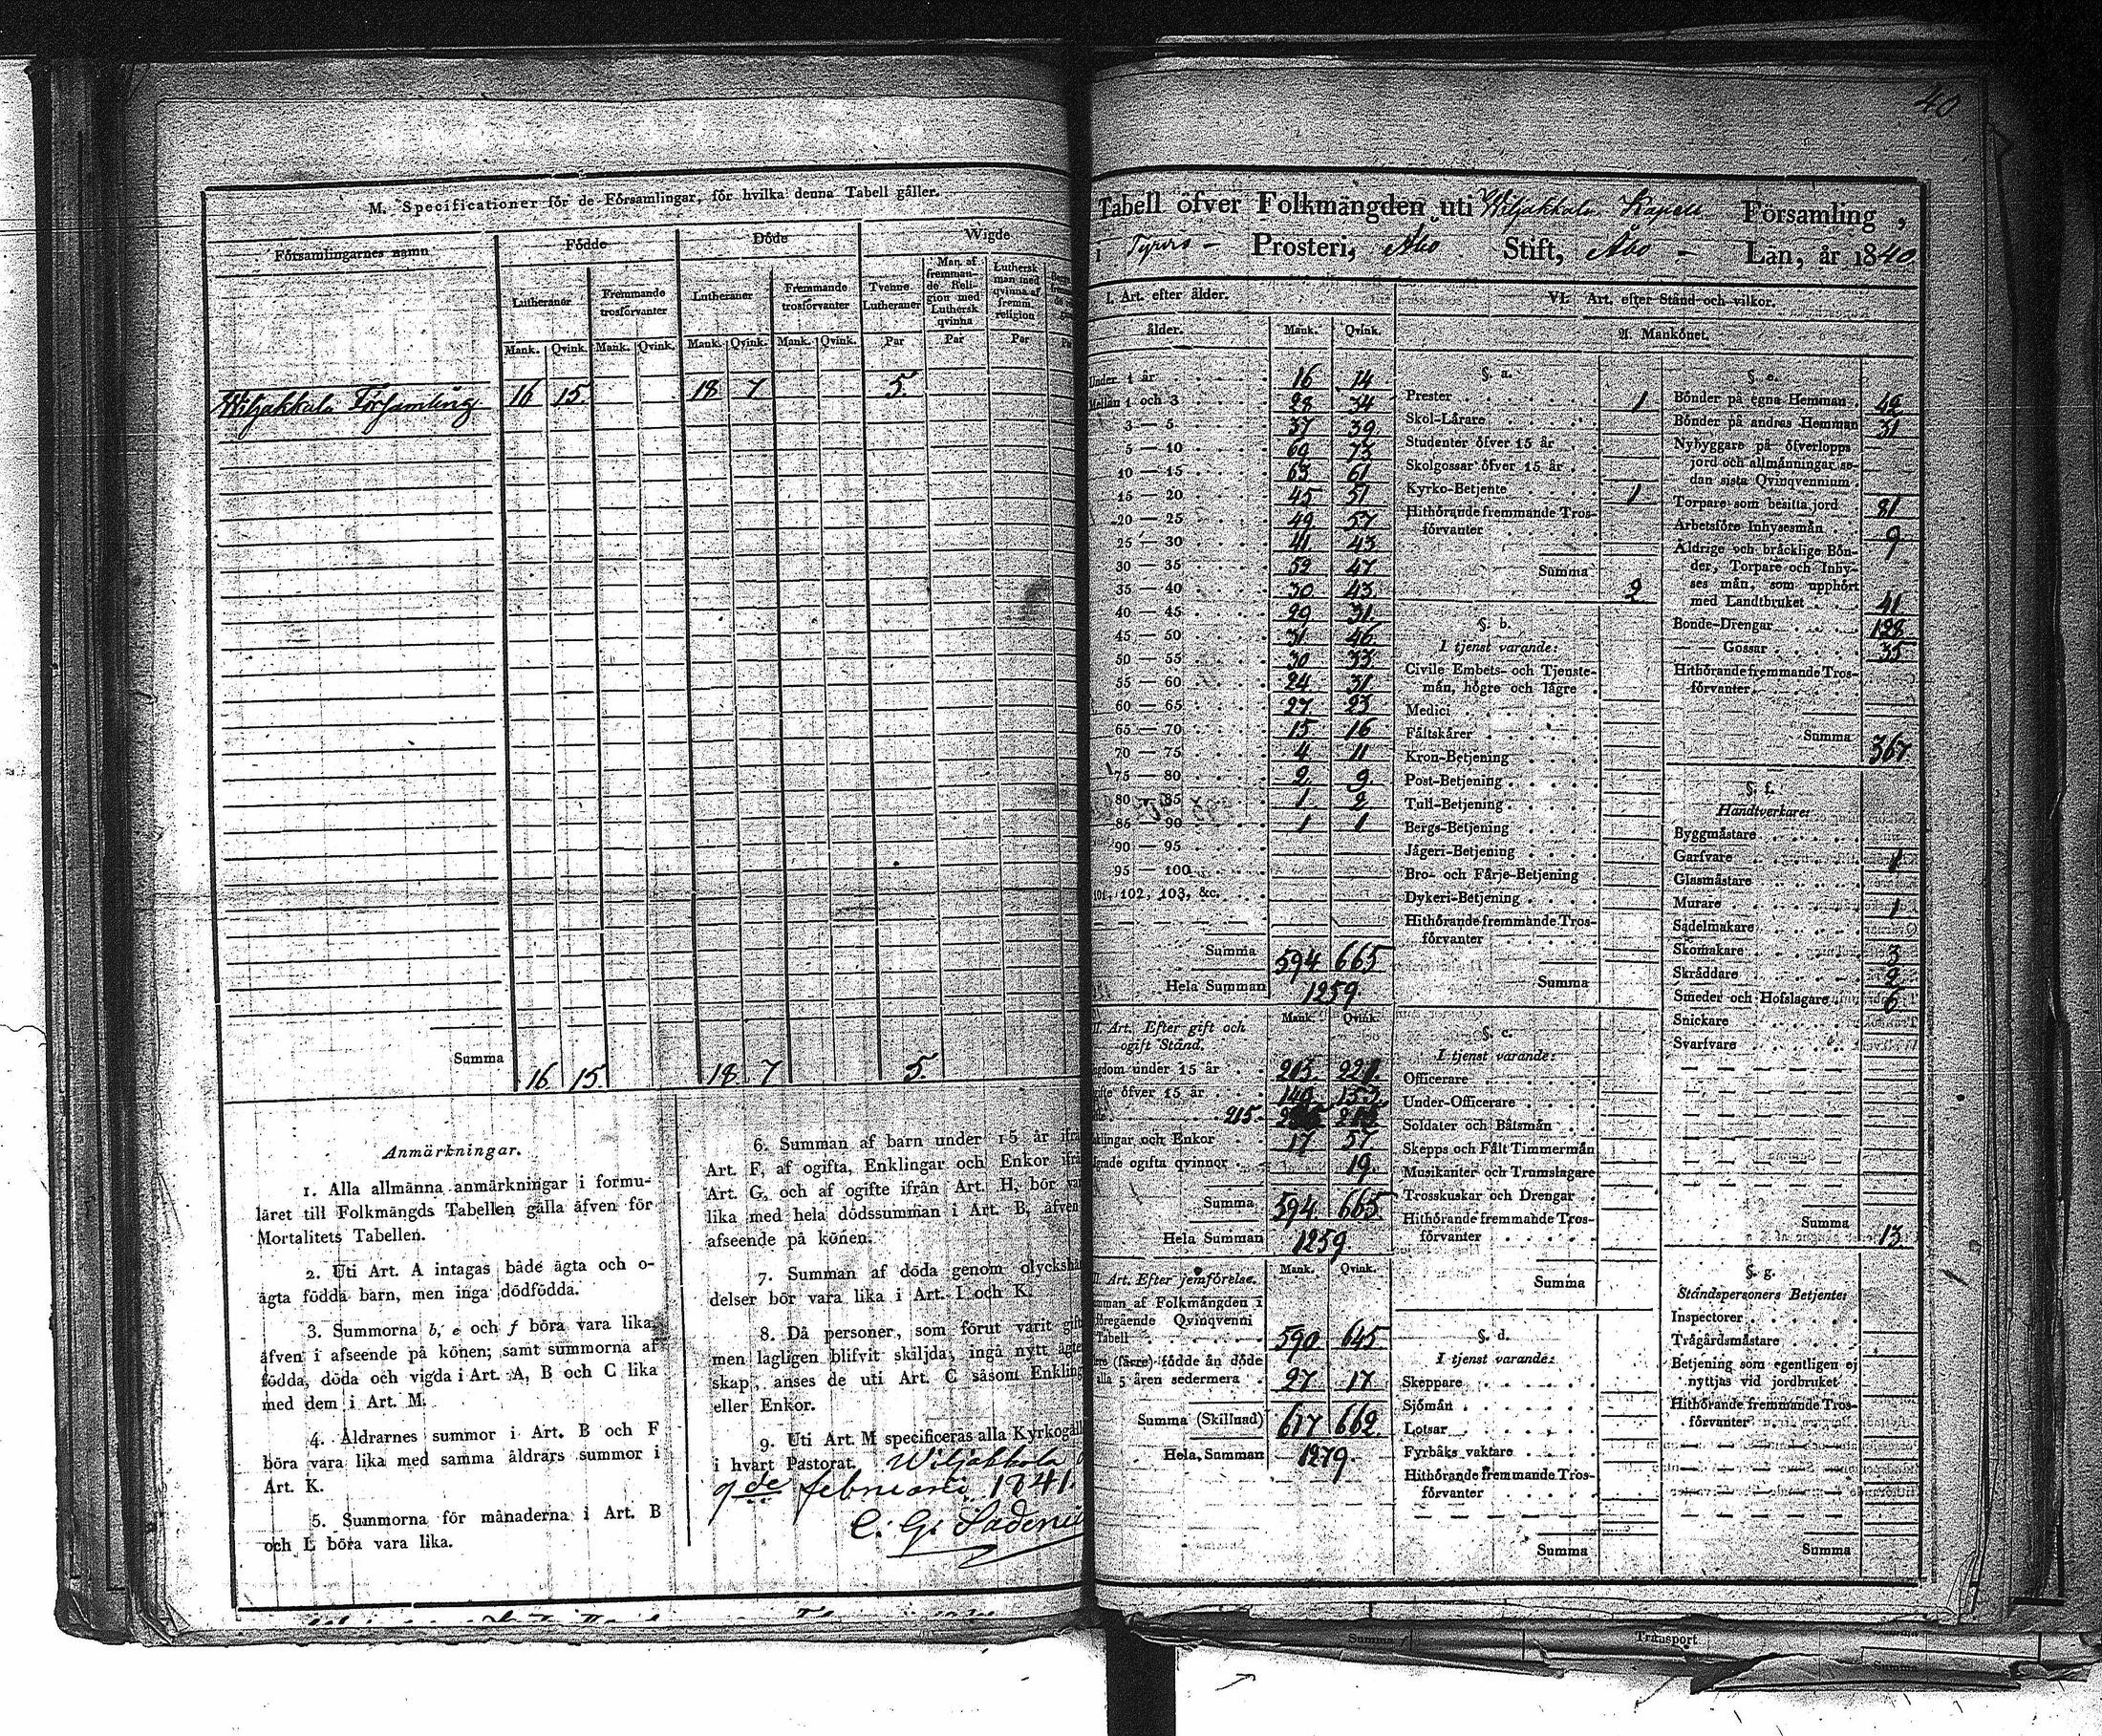 M. Specificationer för de Församlingar, för hvilka denna Tabell gäller.
Församlingarnes namn
Födde
Döde
Wigde
Lutheraner
Fremmande trosförvanter
Lutheraner
Fremmande trosförvanter
Tvenne Lutheraner
Man af fremmande Religion med Luthersk qvinna
Luthersk man med qvinna af fremm. religion
Mank. Qvink. Mank. Qvink. Mank. Qvink. Mank. Qvink. Par Par Par
Wiljakkala Församling 16 15 18 7 5.
Summa 16 15 18 7 5.
Anmärkningar.
1. Alla allmänna anmärkningar i formu-
läret till Folkmängds Tabellen gälla äfven för
Mortalitets Tabellen.
2. Uti Art. A intagas både ägta och o-
ägta födda barn, men inga dödfödda.
3. Summorna b, e och f böra vara lika
äfven i afseende på könen; samt summorna af
födda, döda och vigda i Art. A, B och C lika
med dem i Art. M.
4. Åldrarnes summor i Art. B och F
böra vara lika med samma åldrars summor i
Art. K.
5. Summorna för månaderna i Art. B
och L böra vara lika.
6. Summan af barn under 15 år ifrå
Art. F, af ogifta, Enklingar och Enkor ifrå
Art. G, och af ogifte ifrån Art. H, bör var
lika med hela dödssumman i Art. B, äfven
afseende på könen.
7. Summan af döda genom olyckshän
delser bör vara lika i Art. I och K.
8. Då personer, som förut varit gift
men lagligen blifvit skiljda, ingå nytt ägte
skap, anses de uti Art. C såsom Enkling
eller Enkor.
9. Uti Art. M specificeras alla Kyrkogäll
i hvart Pastorat. Wiljakkala
9de februarii 1841.
C. G. Sadeniu
40
Tabell öfver Folkmängden uti Wiljakkala Kapell Församling,
i Tyrvis Prosteri, Åbo Stift, Åbo Län, år 1840
I. Art. efter ålder.
ålder. Mank. Qvink.
Under 1 år 16 14
Mellan 1 och 3 28 34
3 — 5 37 39
5 — 10 69 73
10 — 15 63 61
15 — 20 45 51
20 — 25 49 57
25 — 30 41 43
30 — 35 52 47
35 — 40 30 43
40 — 45 29 31
45 — 50 31 46
50 — 55 30 33
55 — 60 24 31
60 — 65 27 23
65 — 70 15 16
70 — 75 4 11
75 — 80 2 9
80 — 85 1 2
85 — 90 1 1
90 — 95
95 — 100
101, 102, 103, &c.
Summa 594 665
Hela Summan 1259
II. Art. Efter gift och
ogift Stånd.
Mank. Qvink.
gdom under 15 år 213 221
gifte öfver 15 år 149 153
215.
klingar och Enkor 17 57
grade ogifta qvinnor 19.
Summa 594 665
Hela Summan 1259
II. Art. Efter jemförelse.
Mank. Qvink.
mman af Folkmängden i
föregående Qvinqvenni
Tabell 590 645
(färre) födde än döde
alla 5 åren sedermera 27 17
Summa (Skillnad) 617 662
Hela Summan 1279.
VI. Art. efter Stånd och vilkor.
A. Mankönet.
§. a.
Prester 1
Skol-Lärare
Studenter öfver 15 år
Skolgossar öfver 15 år
Kyrko-Betjente 1
Hithörande fremmande Tros-
förvanter
Summa 2
§. b.
I tjenst varande:
Civile Embets- och Tjenste-
män, högre och lägre
Medici
Fältskärer
Kron-Betjening
Post-Betjening
Tull-Betjening
Bergs-Betjening
Jägeri-Betjening
Bro- och Färje-Betjening
Dykeri-Betjening
Hithörande fremmande Tros-
förvanter
Summa
§. c.
I tjenst varande:
Officerare
Under-Officerare
Soldater och Båtsmän
Skepps och Fält Timmermän
Musikanter och Trumslagare
Trosskuskar och Drengar
Hithörande fremmande Tros-
förvanter
Summa
§. d.
I tjenst varande:
Skeppare
Sjömän
Lotsar
Fyrbåks vaktare
Hithörande fremmande Tros-
förvanter
Summa
§. e.
Bönder på egna Hemman 42
Bönder på andras Hemman 31
Nybyggare på öfverlopps
jord och allmänningar se-
dan sista Qvinqvennium
Torpare som besitta jord 81
Arbetsföre Inhysesmän 9
Åldrige och bräcklige Bön-
der, Torpare och Inhy-
ses män, som upphört
med Landtbruket 41
Bonde-Drengar 128
— — Gossar 35
Hithörande fremmande Tros-
förvanter
Summa 367
§. f.
Handtverkare:
Byggmästare
Garfvare 1
Glasmästare
Murare 1
Sadelmakare
Skomakare 3
Skräddare 2
Smeder och Hofslagare 6
Snickare
Svarfvare
Summa 13
§. g.
Ståndspersoners Betjente:
Inspectorer
Trägårdsmästare
Betjening som egentligen ej
nyttjas vid jordbruket
Hithörande fremmande Tros-
förvanter
Summa
Summa
Transport
Summa